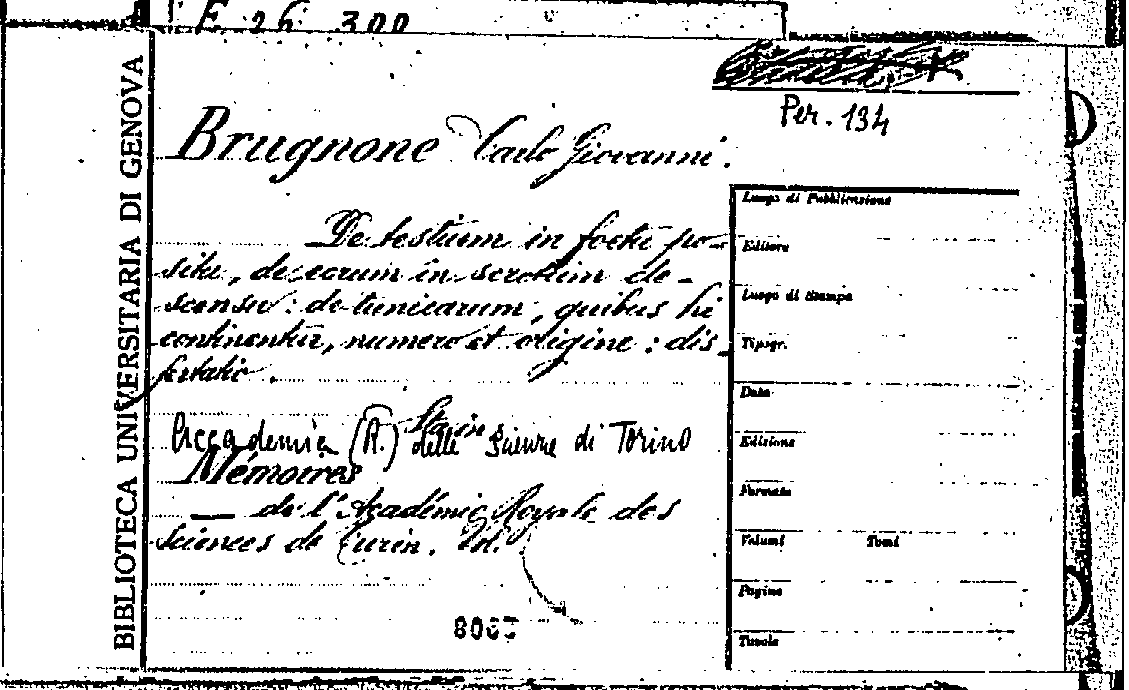 F 26 300
BIBLIOTECA UNIVERSITARIA DI GENOVA
Per. 134
Brugnone Carlo Giovanni.
De testium in foetu po-
situ, de earum in scrotum de-
scensu: de tunicarum, quibus hi
continentur, numero et origine: dis-
sertatio.
Accademia (R.) delle Scienze di Torino
Mémoires
— de l'Académie Royale des
Sciences de Turin. Vol.
Luogo di Pubblicazione
Editore
Luogo di Stampa
Tipogr.
Data
Edizione
Formato
Volumi Tomi
Pagine
Tavole